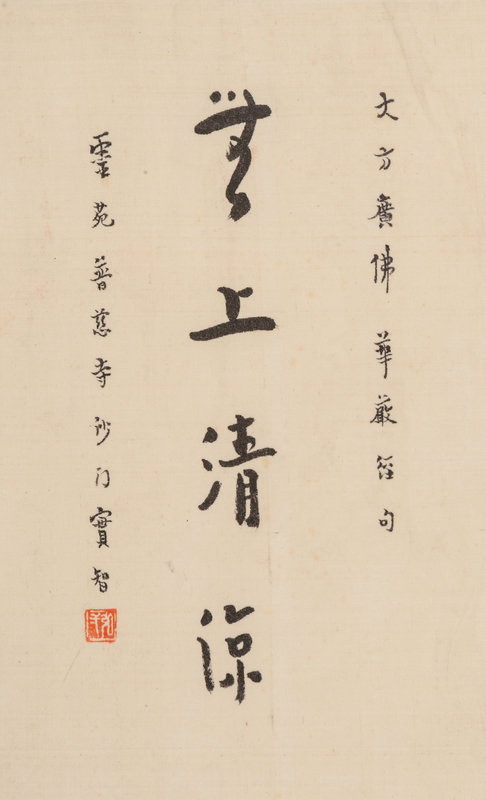 大方廣佛華嚴經句
無上清涼
靈苑普慈寺沙门實智